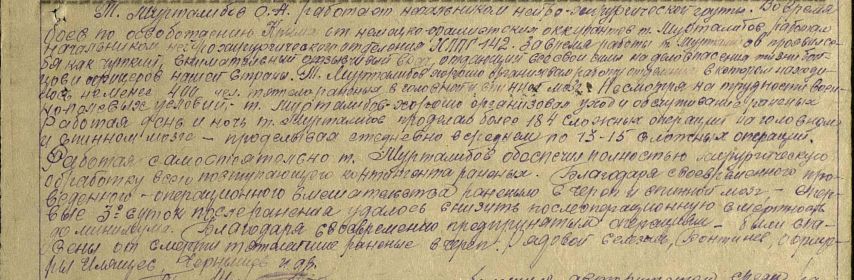 Т. Мурталибов О.А. работает начальником нейро-хирургической группы. Во время
боев по освобождению Крыма от немецко-фашистских оккупантов т. Мурталибов, работая
начальником нейрохирургического отделения ХППГ 142. За время работы т. Мурталибов проявил се-
бя как чуткий, внимательный отзывчивый врач, отдающий все свои силы на дело спасения жизни бой-
цов и офицеров нашей страны. Т. Мурталибов хорошо организовал работу отделения в котором находи-
лось не менее 400 чел. тяжелораненых в голову и спинной мозг. Несмотря на трудности воен-
но-полевых условий т. Мурталибов хорошо организовал уход и обслуживание раненых
Работая день и ночь т. Мурталибов проделал более 184 сложных операций на головном
и спинном мозге - проделывая ежедневно в среднем по 13-15 сложных операций.
Работая самостоятельно т. Мурталибов обеспечил полностью хирургическую
обработку всего поступающего контингента раненых. Благодаря своевременного про-
веденного - операционного вмешательства раненых в череп и спинной мозг - в пер-
вые 3е суток после ранения удалось снизить послеоперационную смертность
до минимума. Благодаря своевременно предпринятым операциям - были спа-
сены от смерти тяжелые раненые в череп. Рядовой
ры Чернышов и др.